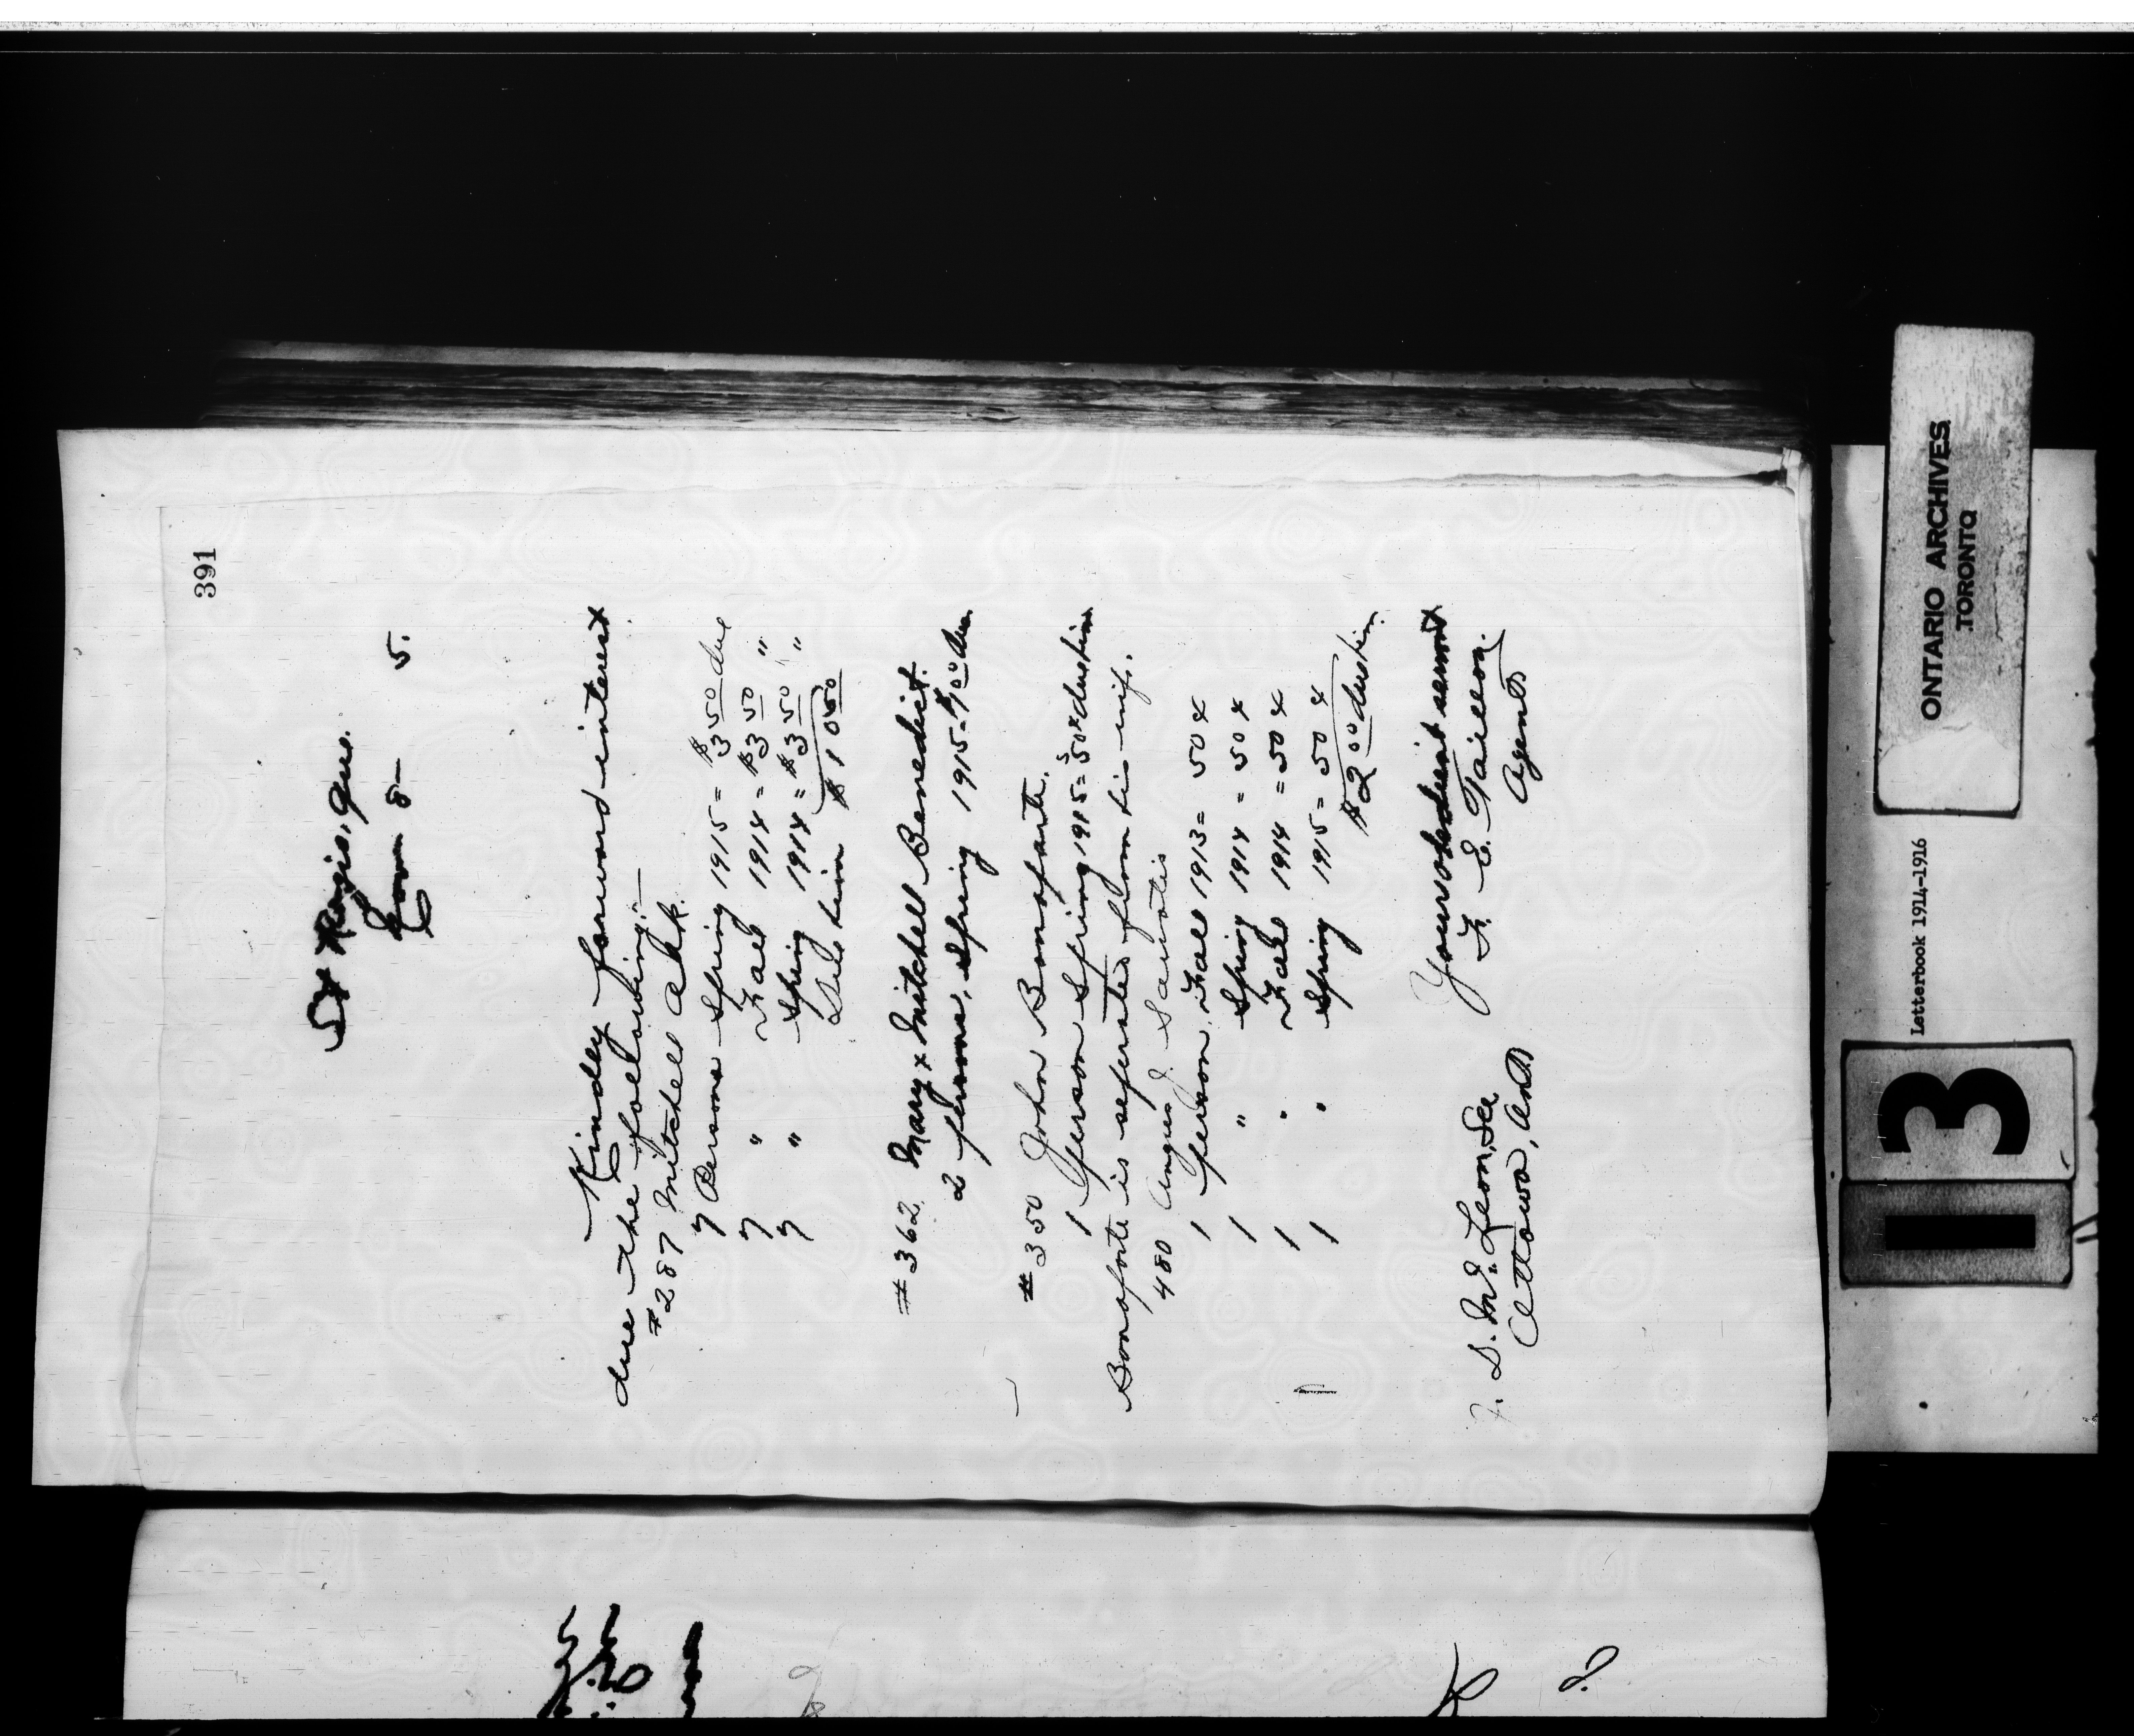 391
St Regis, Que.
June 8- 5.
Kindly forward interest
due the following:-
#287 Mitchell Ahk.
7 Persons Spring 1915 = $3 50 due
7 " Fall 1914 = $3 50 "
7 " Spring 1914 = $3 50 "
Due him $10 50
#362 Mary & Mitchell Benedict.
2 persons, Spring 1915 - $1 00 due
#350 John Bonaparte.
1 person Spring 1915 = 50¢ due him
Bonaparte is seperated from his wife.
480 Angus J.
1 person, Fall 1913 = 50¢
1 " Spring 1914 = 50¢
1 " Fall 1914 = 50¢
1 " Spring 1915 = 50¢
$2 00 due him.
Your obedient servant
F. E. Taillon
Agent
J. D. McLean, Sec
Ottawa, Ont
ONTARIO ARCHIVES
TORONTO
Letterbook 1914-1916
13